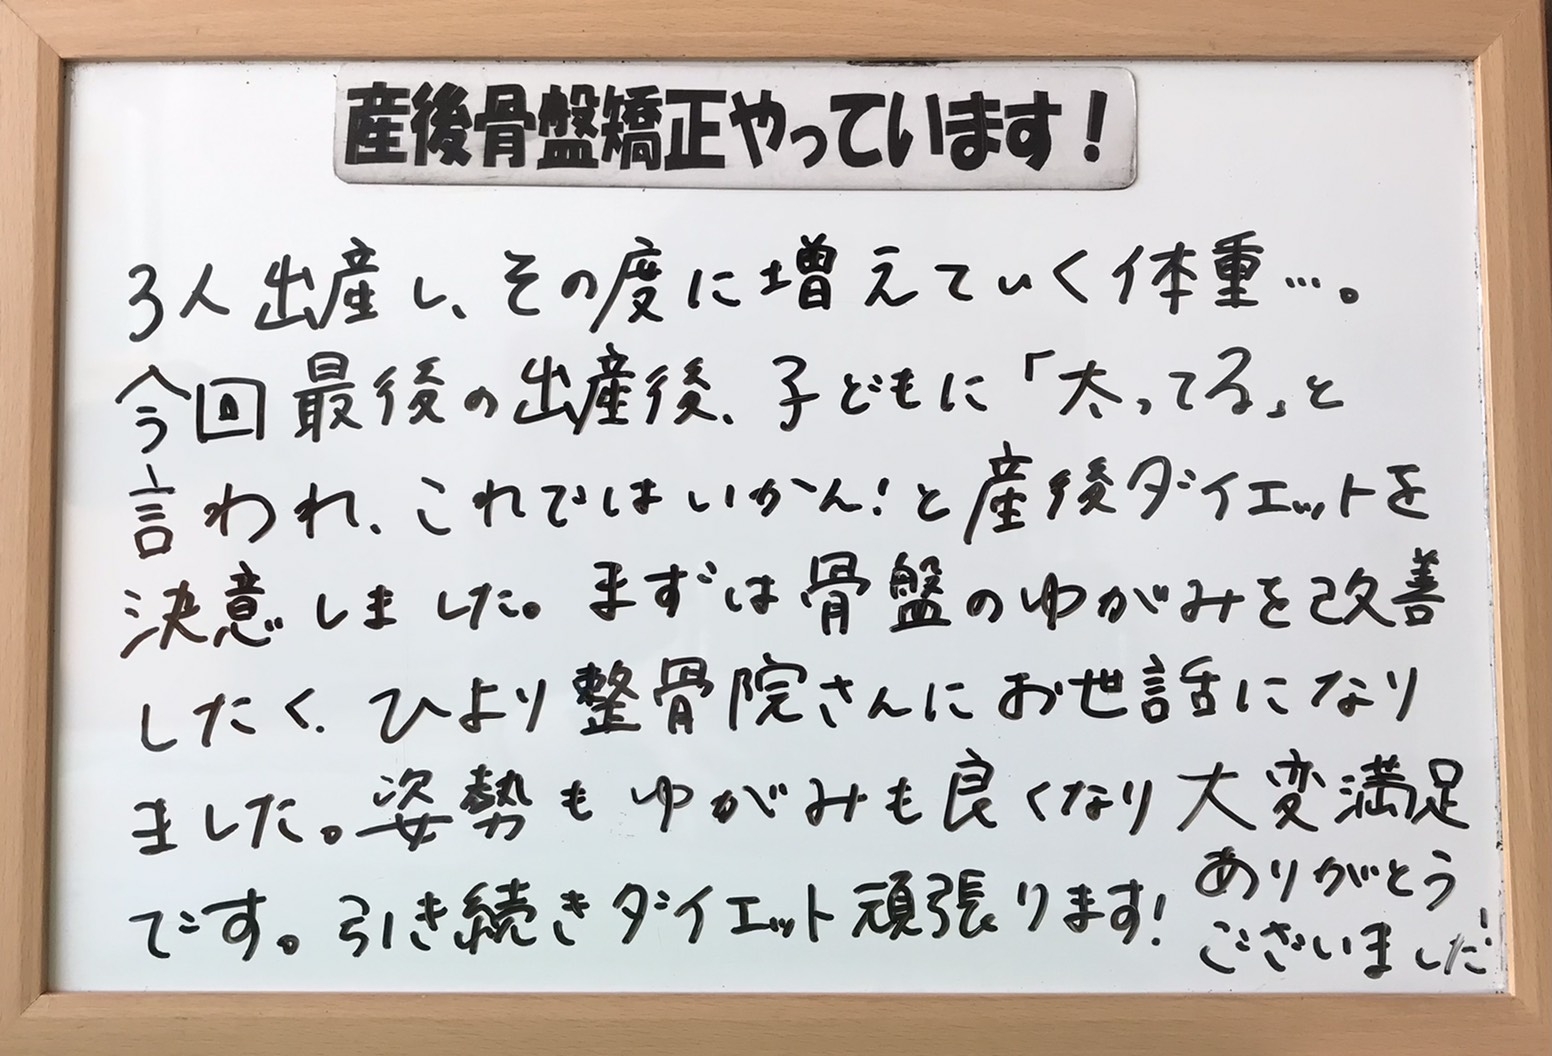 産後骨盤矯正やっています!
3人出産し、その度に増えていく体重…。
今回最後の出産後、子どもに「太ってる」と
言われ、これではいかん!と産後ダイエットを
決意しました。まずは骨盤のゆがみを改善
したく、ひより整骨院さんにお世話になり
ました。姿勢もゆがみも良くなり大変満足
です。引き続きダイエット頑張ります!
ありがとう
ございました!